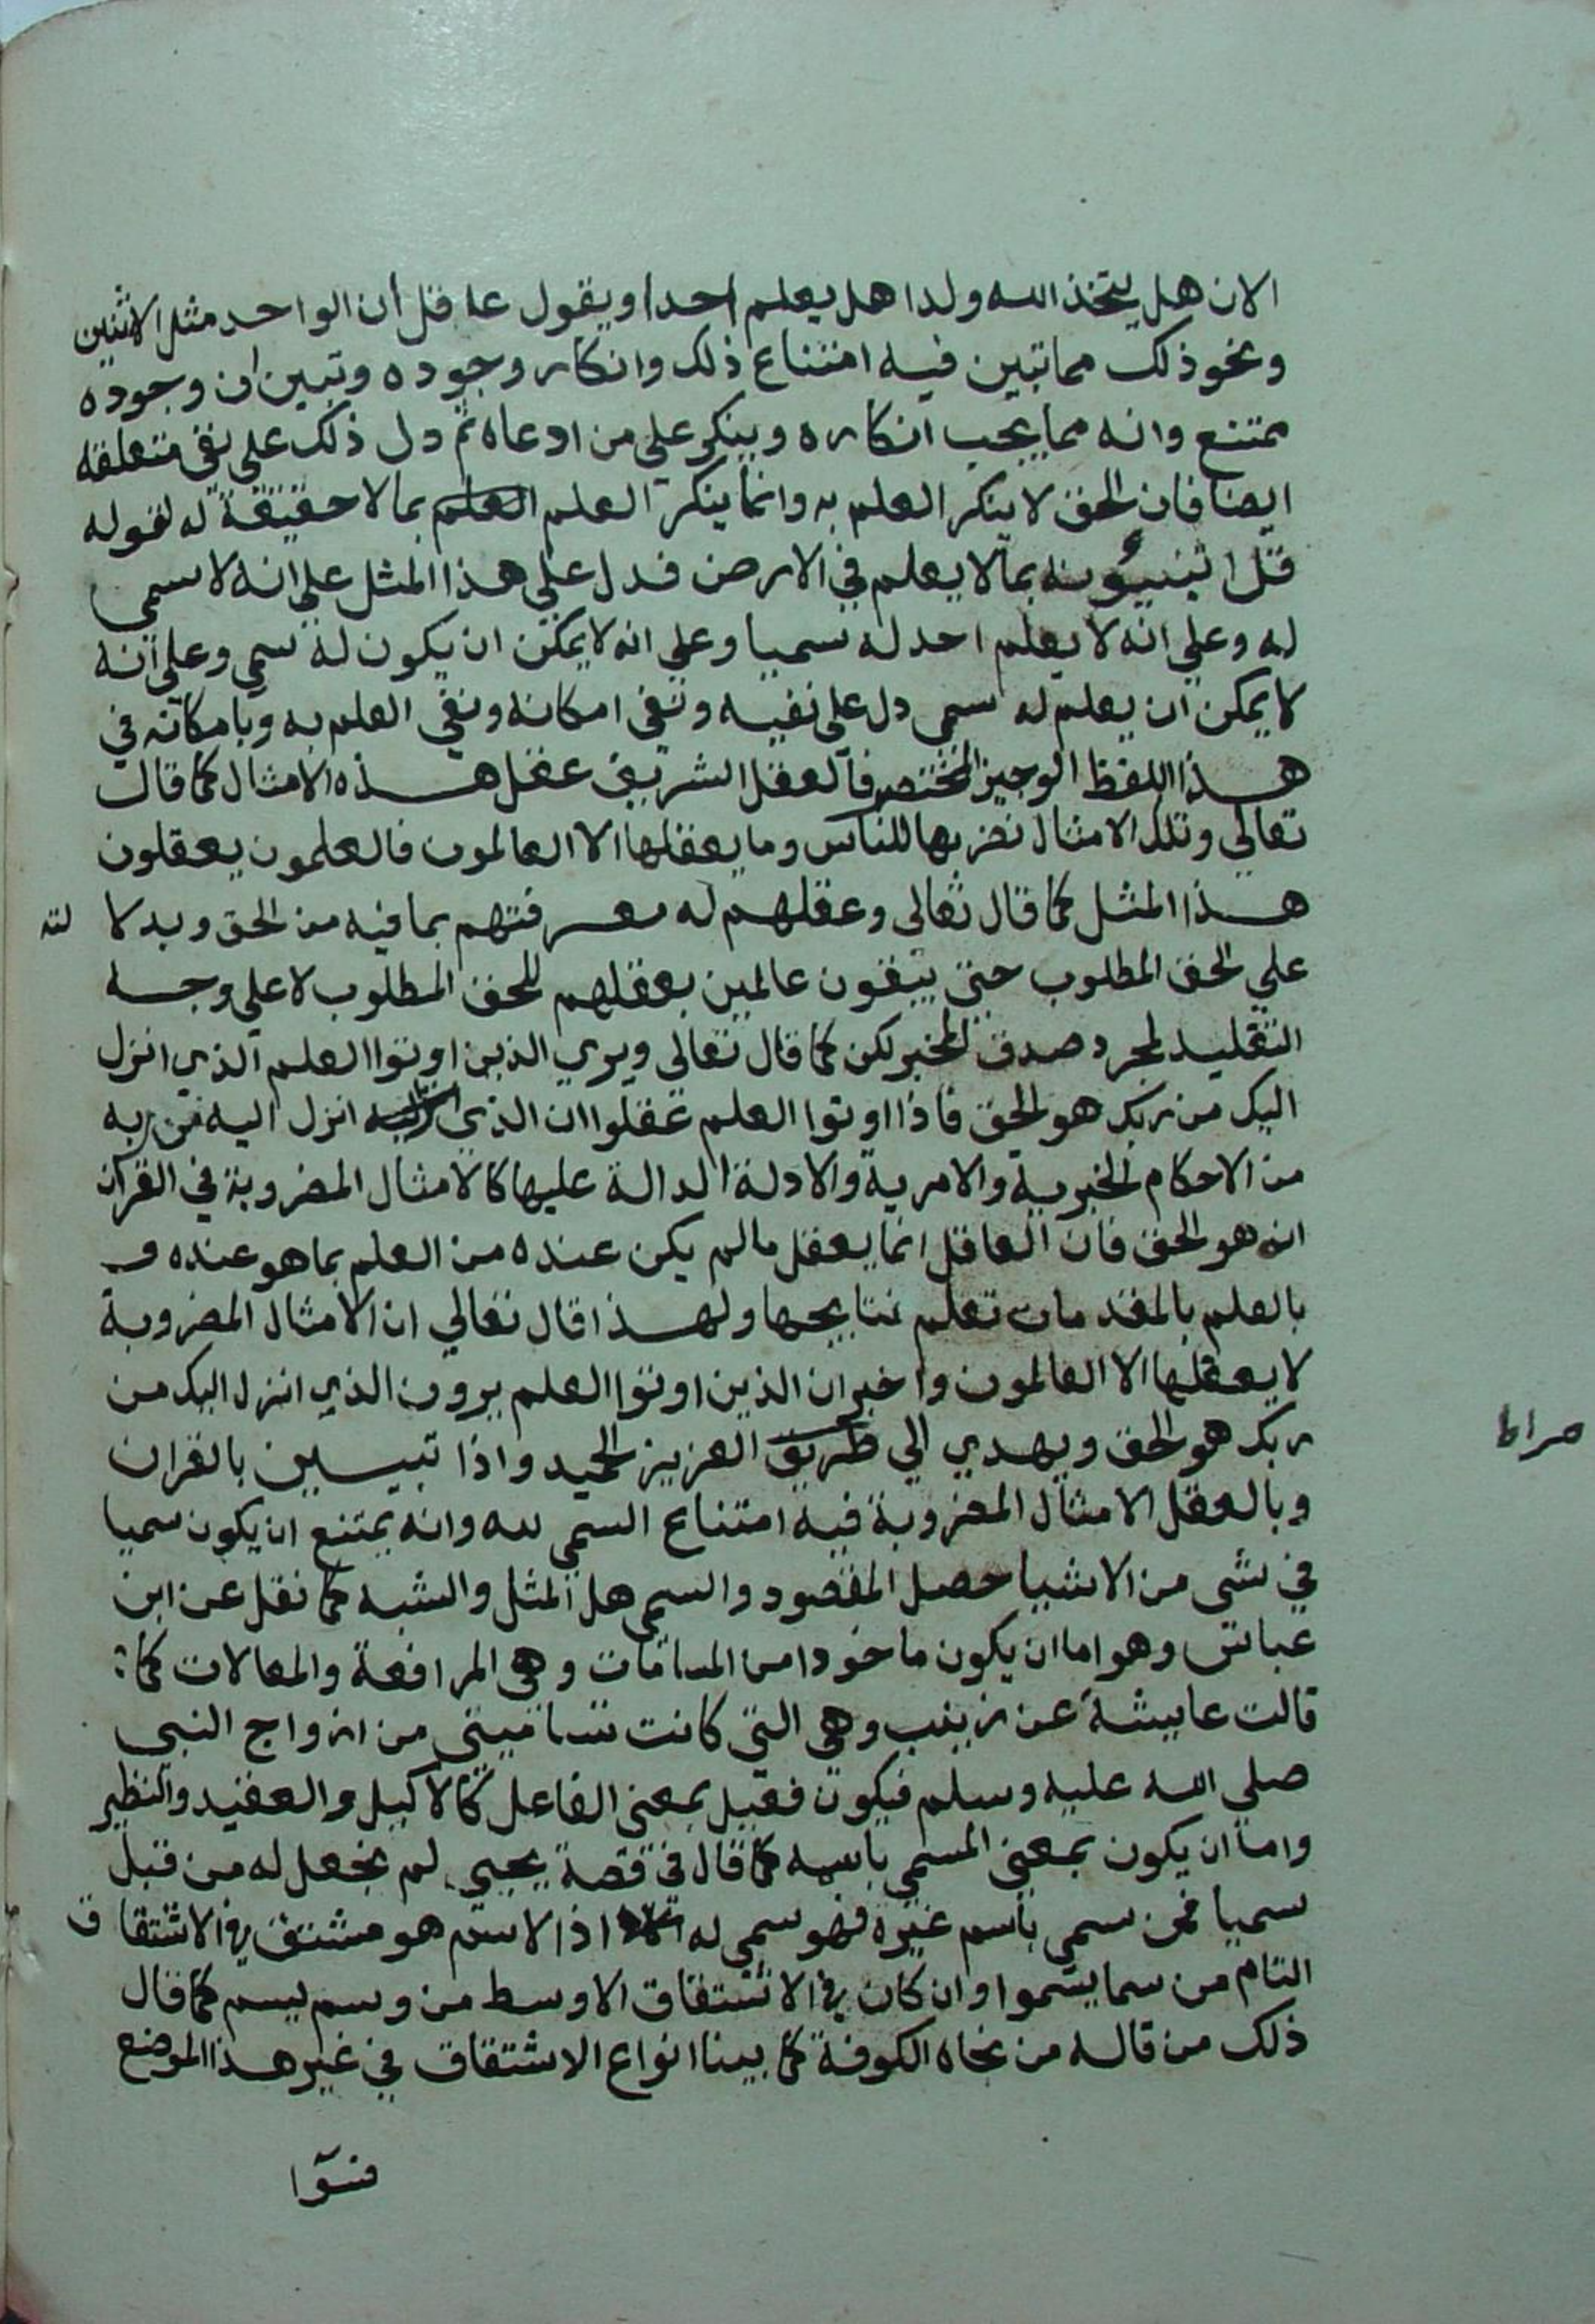 الان هل يتخذ الله ولدا هل يعلم احدا ويقول عاقل ان الواحد مثل الاثنين
ونحو ذلك مما تبين فيه امتناع ذلك وانكار وجوده وتبين ان وجوده
ممتنع وانه مما يجب انكاره وينكر علي من ادعاه ثم دل ذلك علي نفي متعلقه
ايضا فان الحق لا ينكر العلم به وانما ينكر العلم العلم بما لا حقيقة له لقوله
قل اتنبيؤنه بما لا يعلم في الارض فدل علي هذا المثل علي انه لا سمي
له وعلي انه لا يعلم احد له سميا وعلي انه لا يمكن ان يكون له سمي وعلي انه
لا يمكن ان يعلم له سمي دل علي نفيه ونفي امكانه ونفي العلم به وبامكانه في
هذا اللفظ الوجيز المختصر فالعقل الشريف عقل هذه الامثال كما قال
تعالي وتلك الامثال نضربها للناس وما يعقلها الا العالمون فالعلمون يعقلون
هذا المثل كما قال تعالي وعقلهم له معرفتهم بما فيه من الحق وبدلا لته
علي الحق المطلوب حتي يبقون عالمين بعقلهم للحق المطلوب لا علي وجه
التقليد لمجرد صدق المخبر لكن كما قال تعالي ويري الذين اوتوا العلم الذي انزل
اليك من ربك هو الحق فاذا اوتوا العلم عقلوا ان الذي انزل اليه من ربه
من الاحكام الخبرية والامرية والادلة الدالة عليها كالامثال المضروبة في القران
انه هو الحق فان العاقل انما يعقل مالم يكن عنده من العلم بما هو عنده و
بالعلم بالمقدمات تعلم نتايجها ولهذا قال تعالي ان الامثال المضروبة
لا يعقلها الا العالمون واخبر ان الذين اوتوا العلم يرون الذي انزل اليك من
ربك هو الحق ويهدي الي طريق العزيز الحميد واذا تبين بالقران
صراط
وبالعقل الامثال المضروبة فيه امتناع السمي لله وانه يمتنع ان يكون سميا
في شي من الاشيا حصل المقصود والسمي هل المثل والشبه كما نقل عن ابن
عباس وهو اما ان يكون ماخودا من المسامات وهي المرافعة والمعالات كما
قالت عايشة عن زينب وهي التي كانت تساميني من ازواج النبي
صلي الله عليه وسلم فيكون فعيل بمعني الفاعل كالاكيل والعقيد والنظير
واما ان يكون بمعني المسمي باسمه كما قال في قصة يحيي لم نجعل له من قبل
سميا فمن سمي باسم غيره فهو سمي له اذ الاسم هو مشتق في الاشتقا ق
التام من سما يسموا وان كان في الاشتقاق الاوسط من وسم يسم كما قال
ذلك من قاله من نحاه الكوفة كما بينا انواع الاشتقاق في غير هذا الموضع